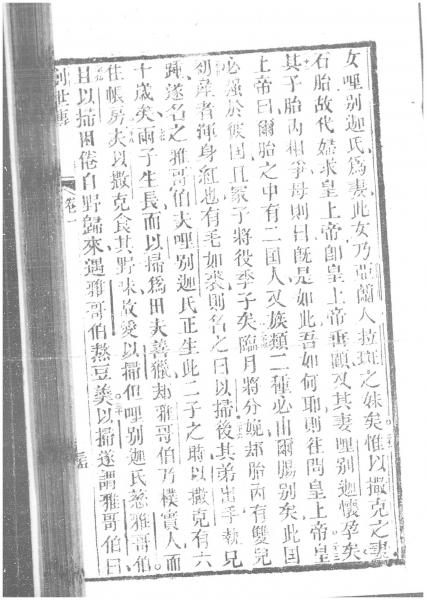 女哩別迦氏爲妻此女乃亞蘭人拉班之妹矣惟以撒克之妻
石胎故代婦求皇上帝卽皇上帝垂顧又其妻哩別迦懷孕矣
其子胎內相爭母則曰旣是如此吾如何耶則往問皇上帝皇
上帝曰爾胎之中有二國人又族類二種必由爾腸別矣此國
必强於彼國且冢子將役季子矣臨月將分娩却胎內有雙兒
初產者渾身紅也有毛如裘則名之曰以掃後其弟出手執兄
踵遂名之雅哥伯夫哩別迦氏正生此二子之時以撒克有六
十歲矣兩子生長而以掃爲田夫善獵却雅哥伯乃樸實人而
住帳房夫以撒克食其野味故愛以掃但哩別迦氏慈雅哥伯
且以掃困倦自野歸來遇雅哥伯熬豆羹以掃遂謂雅哥伯曰
創世傳 卷一